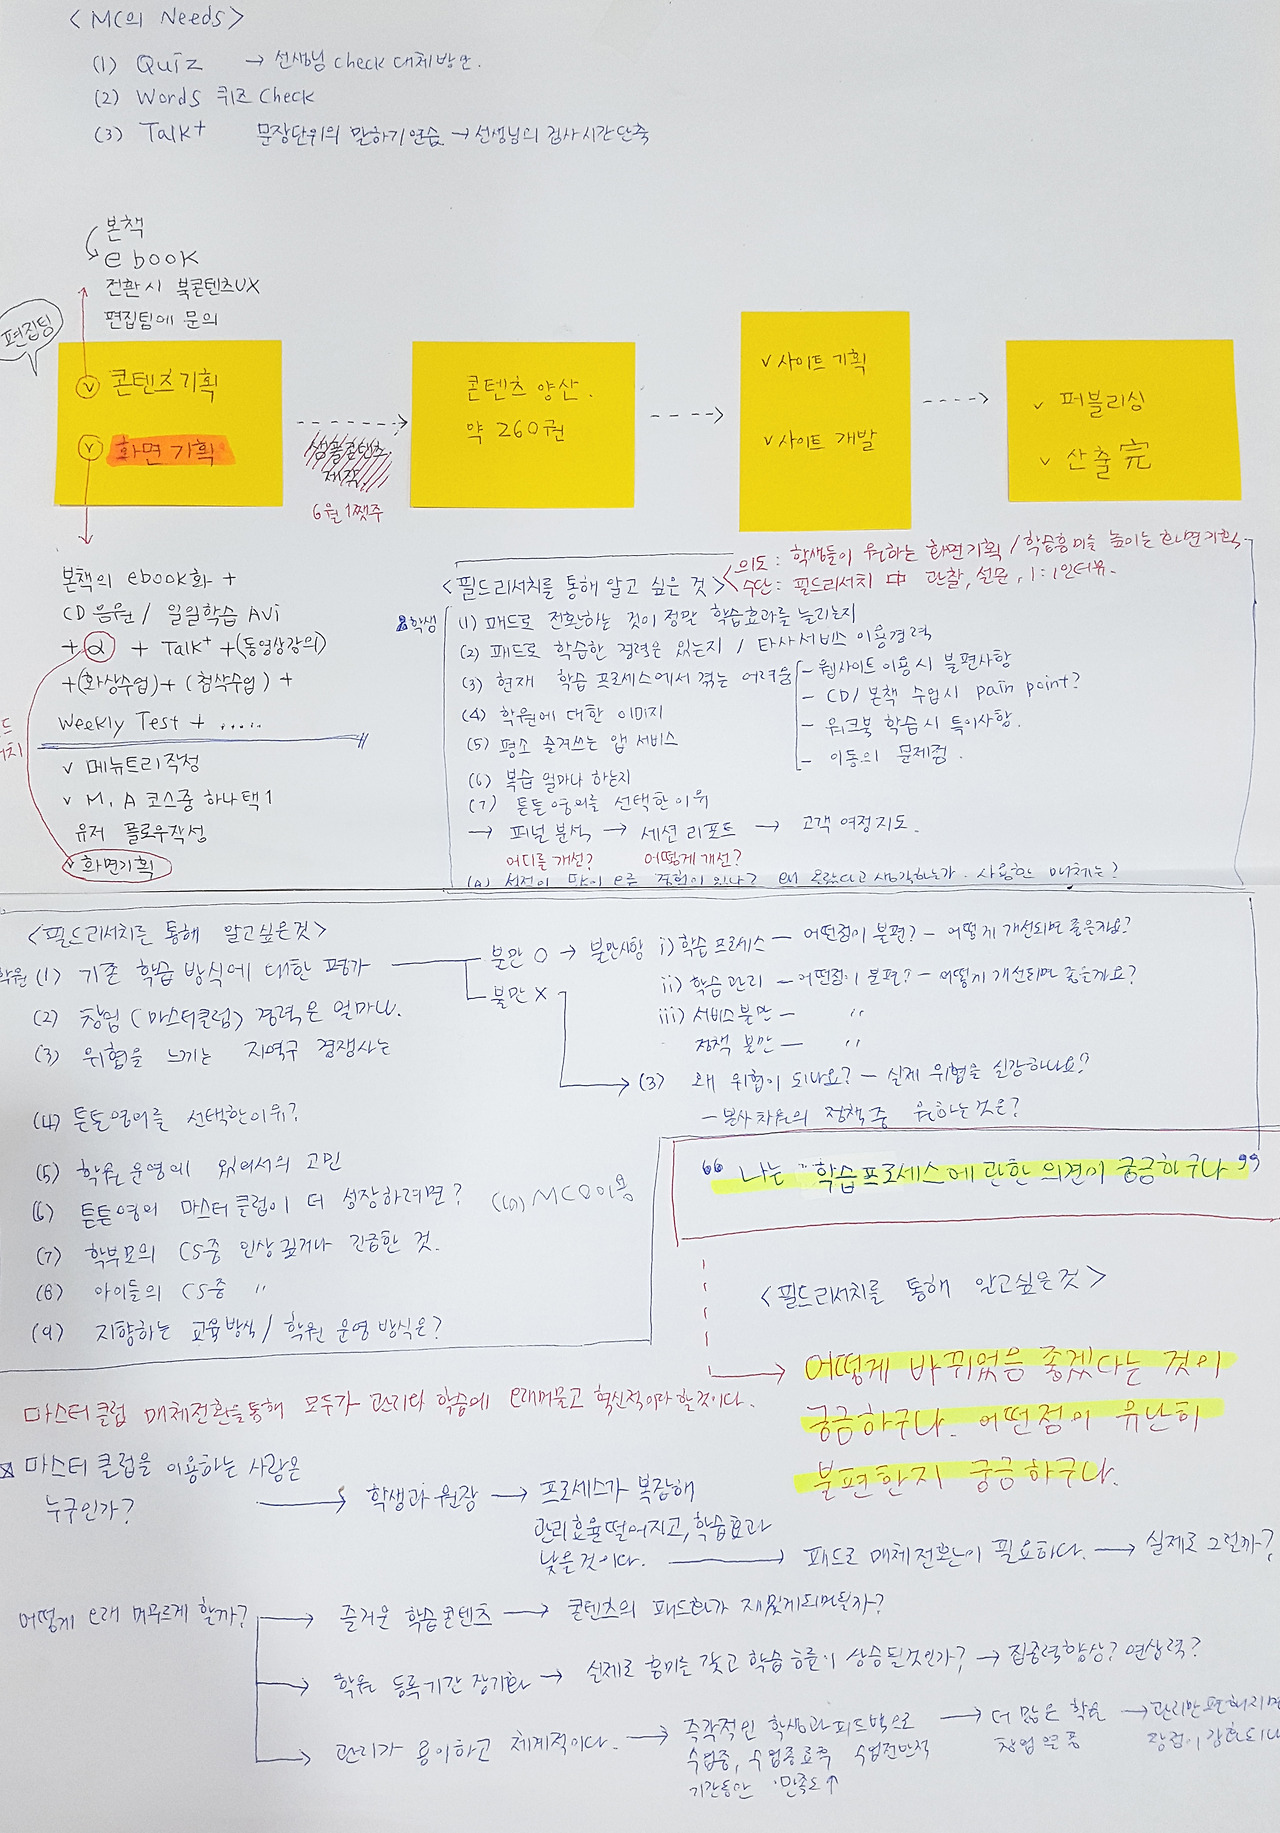 < MC의 Needs >
(1) Quiz → 선생님 check 대체방안.
(2) Words 퀴즈 Check
(3) Talk+ 문장단위의 말하기연습 → 선생님의 검사시간단축
본책
e book
전환시 북콘텐츠UX
편집팀에 문의
편집팀
v 콘텐츠기획
v 화면기획
샘플콘텐츠
제작
6월 1쨋주
콘텐츠 양산.
약 260권
v 사이트 기획
v 사이트 개발
v 퍼블리싱
v 산출 完
본책의 ebook화 +
CD음원 / 일일학습 AVi
+ α + Talk+ +(동영상강의)
+(화상수업)+ (첨삭수업) +
Weekly Test + .....
v 메뉴트리작성
v M, A 코스중 하나택1
유저 플로우작성
v 화면기획
<필드리서치를 통해 알고 싶은 것>
의도 : 학생들이 원하는 화면기획 / 학습흥미를 높이는 화면기획
수단 : 필드리서치 中 관찰, 설문, 1:1인터뷰.
학생
(1) 패드로 전환하는 것이 정말 학습효과를 늘리는지
(2) 패드로 학습한 경력은 있는지 / 타사서비스 이용경력
(3) 현재 학습 프로세스에서 겪는 어려움
- 웹사이트 이용시 불편사항
- CD/ 본책 수업시 pain point?
- 워크북 학습시 특이사항.
- 이동의 문제점.
(4) 학원에 대한 이미지
(5) 평소 즐겨쓰는 앱 서비스
(6) 복습 얼마나 하는지
(7) 튼튼영어를 선택한이유
→ 퍼널 분석 → 세션 리포트 → 고객 여정지도.
어디를 개선? 어떻게 개선?
사용한 매체는?
<필드리서치를 통해 알고싶은것>
학원 (1) 기존 학습 방식에 대한 평가
불만 O → 불만사항 i) 학습프로세스 — 어떤점이 불편? — 어떻게 개선되면 좋은지요?
ii) 학습관리 — 어떤점이 불편? — 어떻게 개선되면 좋을까요?
iii) 서비스불만 — 〃
정책 불만 — 〃
불만 X
(3) 왜 위협이 되나요? — 실제 위협을 실감하나요?
— 본사차원의 정책중 원하는것은?
(2) 창업 (마스터클럽) 경력은 얼마나.
(3) 위협을 느끼는 지역구 경쟁사는
(4) 튼튼영어를 선택한이유?
(5) 학원 운영에 있어서의 고민
(6) 튼튼영어 마스터클럽이 더 성장하려면?
(7) 학부모의 CS중 인상깊거나 긴급한 것.
(8) 아이들의 CS중 〃
(9) 지향하는 교육방식 / 학원 운영 방식은?
(10) MCO이용
“ 나는 "학습프로세스에 관한 의견이 궁금하구나 ”
<필드리서치를 통해 알고싶은것>
어떻게 바뀌었음 좋겠다는 것이
궁금하구나. 어떤점이 유난히
불편한지 궁금하구나.
마스터클럽 매체전환을통해 모두가 관리와 학습에 오래머물고 혁신적이라 할것이다.
마스터클럽을 이용하는 사람은
누구인가?
학생과 원장 → 프로세스가 복잡해
관리효율떨어지고, 학습효과
낮은것이다. → 패드로 매체전환이 필요하다. → 실제로 그런까?
어떻게 오래 머무르게 할까?
즐거운 학습콘텐츠 → 콘텐츠의 패드화가 재밌게되어질까?
학원 등록기간 장기화 → 실제로 흥미를 갖고 학습 효율이 상승될것인가? → 집중력향상? 연상력?
관리가 용이하고 체계적이다. → 즉각적인 학생과피드백으로
수업중, 수업종료후 수업전반적
기간동안 만족도↑
더 많은 학원
창업 열풍
관리만편해지면
장점이 강화되나